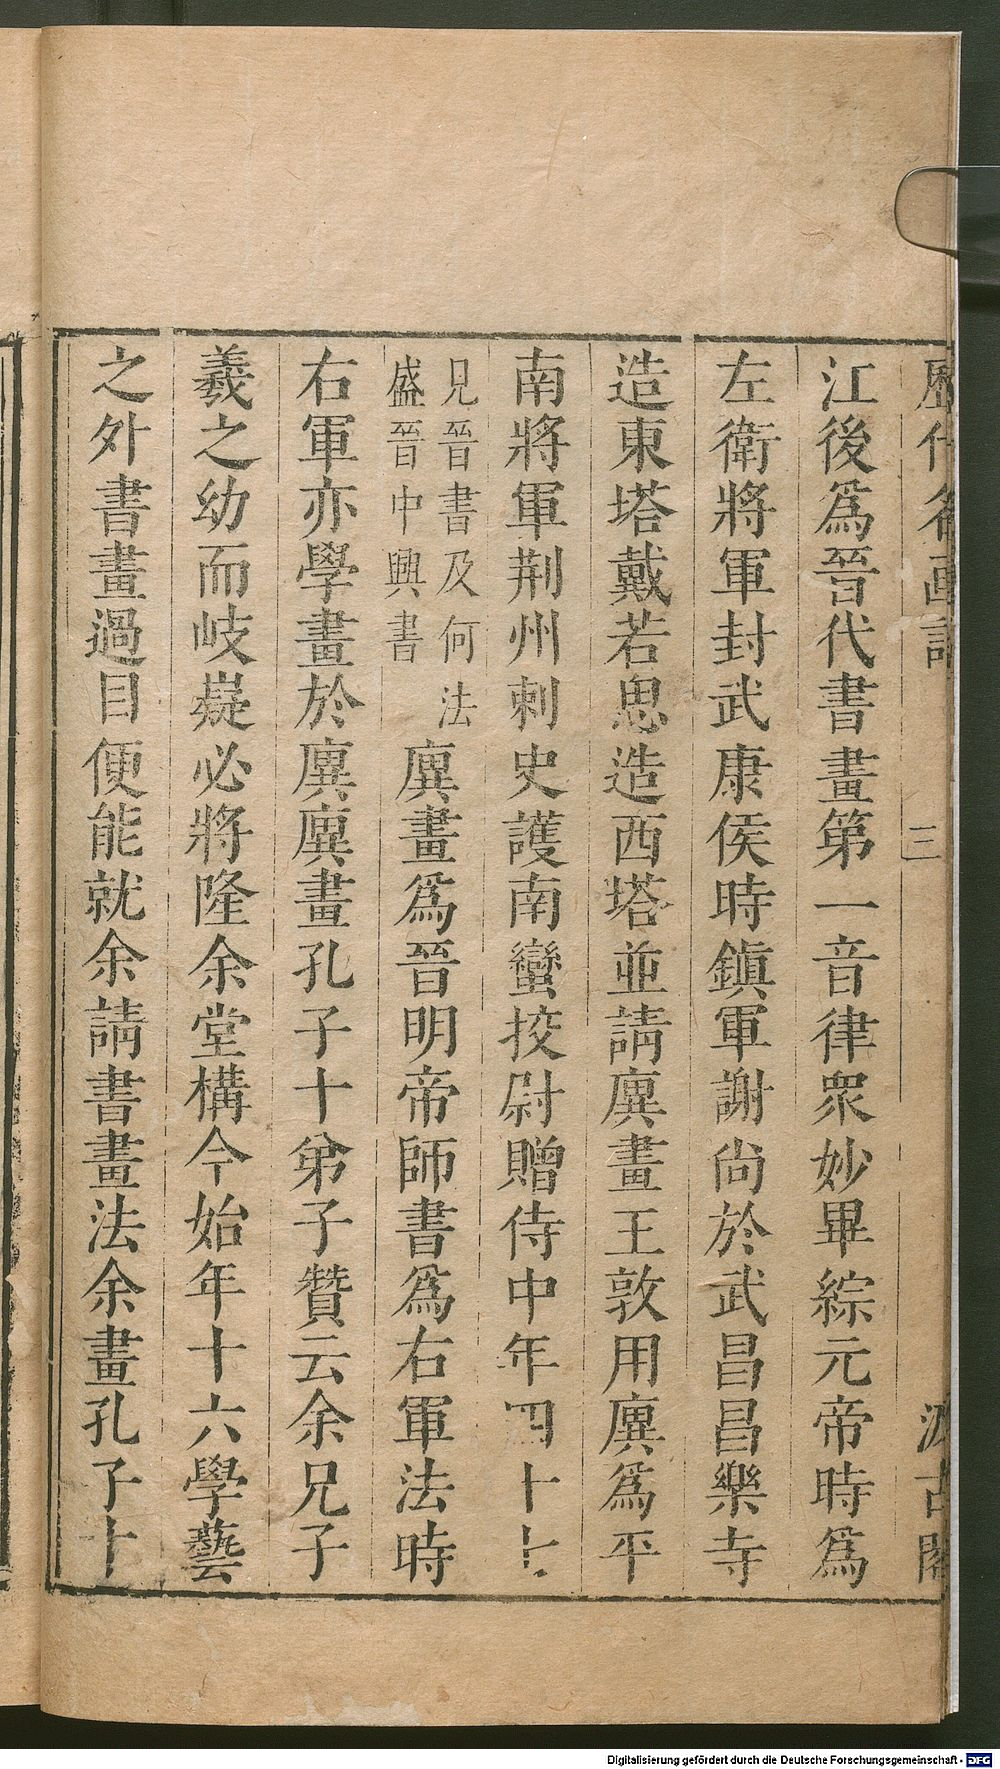 歷代名画記 三 汲古閣
江後爲晉代書畫第一音律衆妙畢綜元帝時爲
左衛將軍封武康侯時鎭軍謝尙於武昌昌樂寺
造東塔戴若思造西塔並請廙畫王敦用廙爲平
南將軍荆州刺史護南蠻挍尉贈侍中年四十七
見晉書及何法
盛晉中興書
廙畫爲晉明帝師書爲右軍法時
右軍亦學畫於廙廙畫孔子十弟子贊云余兄子
羲之幼而岐嶷必將隆余堂構今始年十六學藝
之外書畫過目便能就余請書畫法余畫孔子十
Digitalisierung gefördert durch die Deutsche Forschungsgemeinschaft - DFG